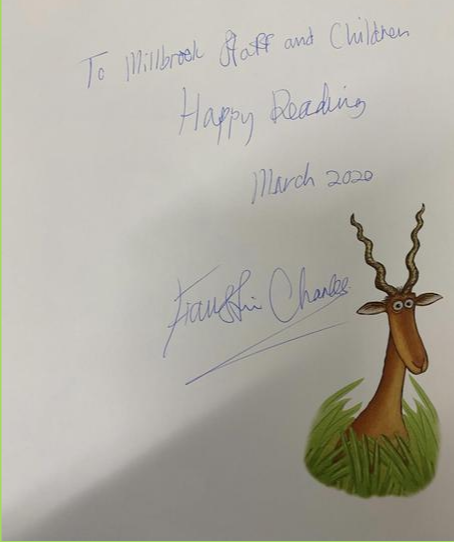 To Millbrook Staff and Children
Happy Reading
March 2020
Faustin Charles